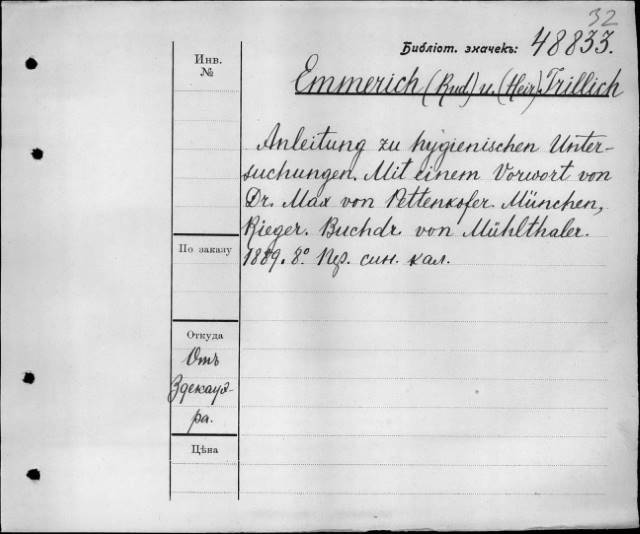 32
Библіот. значекъ: 48833.
Инв.
№
Emmerich (Rud) u. (Heir). Trillich
Anleitung zu hygienischen Unter-
suchungen. Mit einem Vorwort von
Dr. Max von Pettenkofer. München,
Rieger. Buchdr. von Mühlthaler.
По заказу
1889. 8º. Пер. син. кал.
Откуда
Отъ
Здекауэ-
ра.
Цѣна